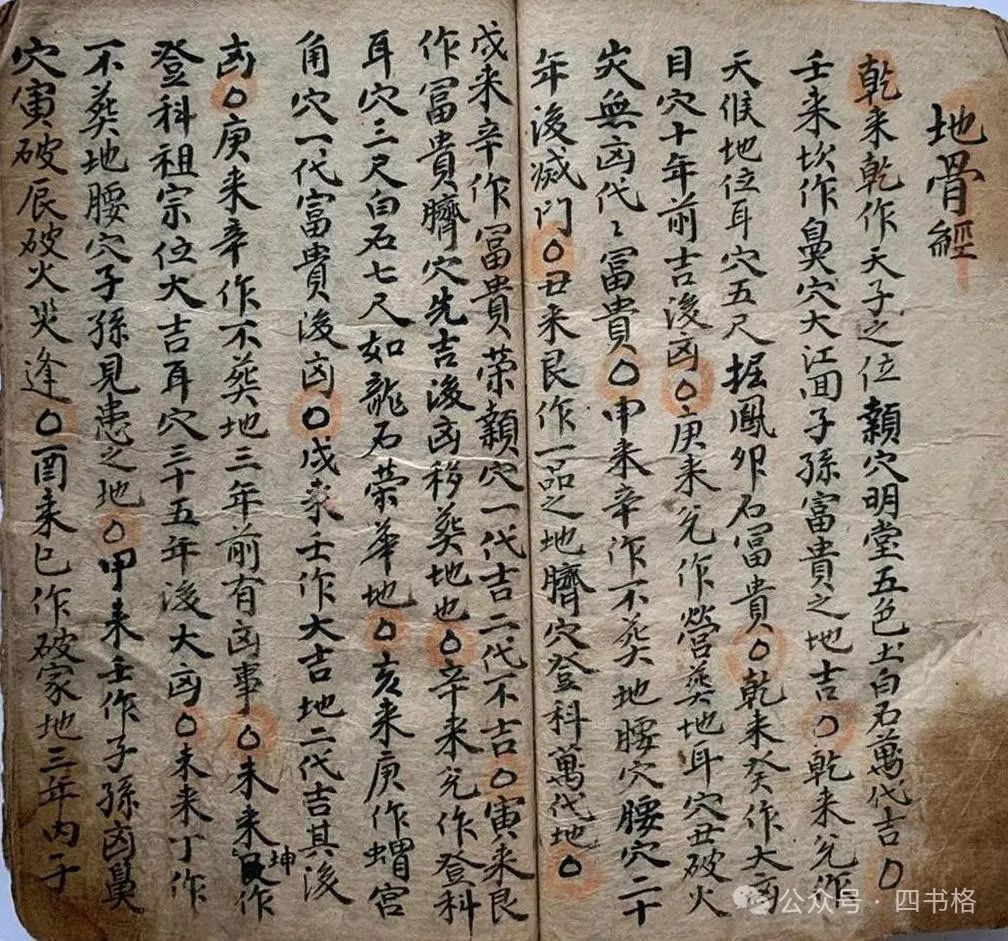 地骨經
乾来乾作天子之位顙穴明堂五色土白石萬代吉○
壬来坎作鼻穴大江回子孫富貴之地吉○乾来兊作
天候地位耳穴五尺掘鳳卵石冨貴○乾来癸作大凶
目穴十年前吉後凶○庚来兊作營葬地耳穴丑破火
灾無凶代〻冨貴○申来辛作不葬地腰穴腰穴二十
年後滅门○丑来艮作一品之地臍穴登科萬代地○
戌来辛作冨貴荣顙穴一代吉二代不吉○寅来艮
作冨貴臍穴先吉後凶移葬地也○辛来兊作登科
耳穴三尺白石七尺如龍石荣華地○亥来庚作蝟宫
角穴一代富貴後凶○戌来壬作大吉地二代吉其後
凶○庚来辛作不葬地三年前有凶事○未来坤作
登科祖宗位大吉耳穴三十五年後大凶○未来丁作
不葬地腰穴子孫見患之地○甲来壬作子孫凶鼻
穴寅破辰破火災逢○酉来巳作破家地三年内子
公众号·四书格